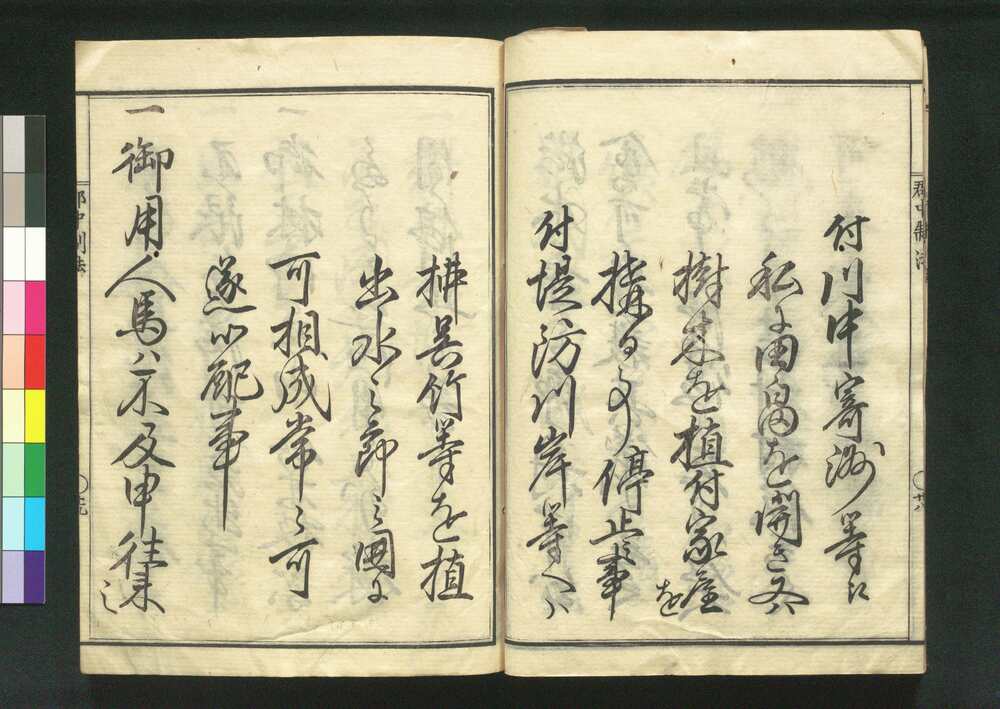 郡中制法
廿八
付川中寄洲等江
私ニ田畠を開き又ハ
樹木を植付家屋を
構る事停止之事
付堤防川岸等へハ
柳呉竹等を植
出水之節之固ニ
可相成常々可
遂心配事
一御用人馬ハ不及申往来之
郡中制法